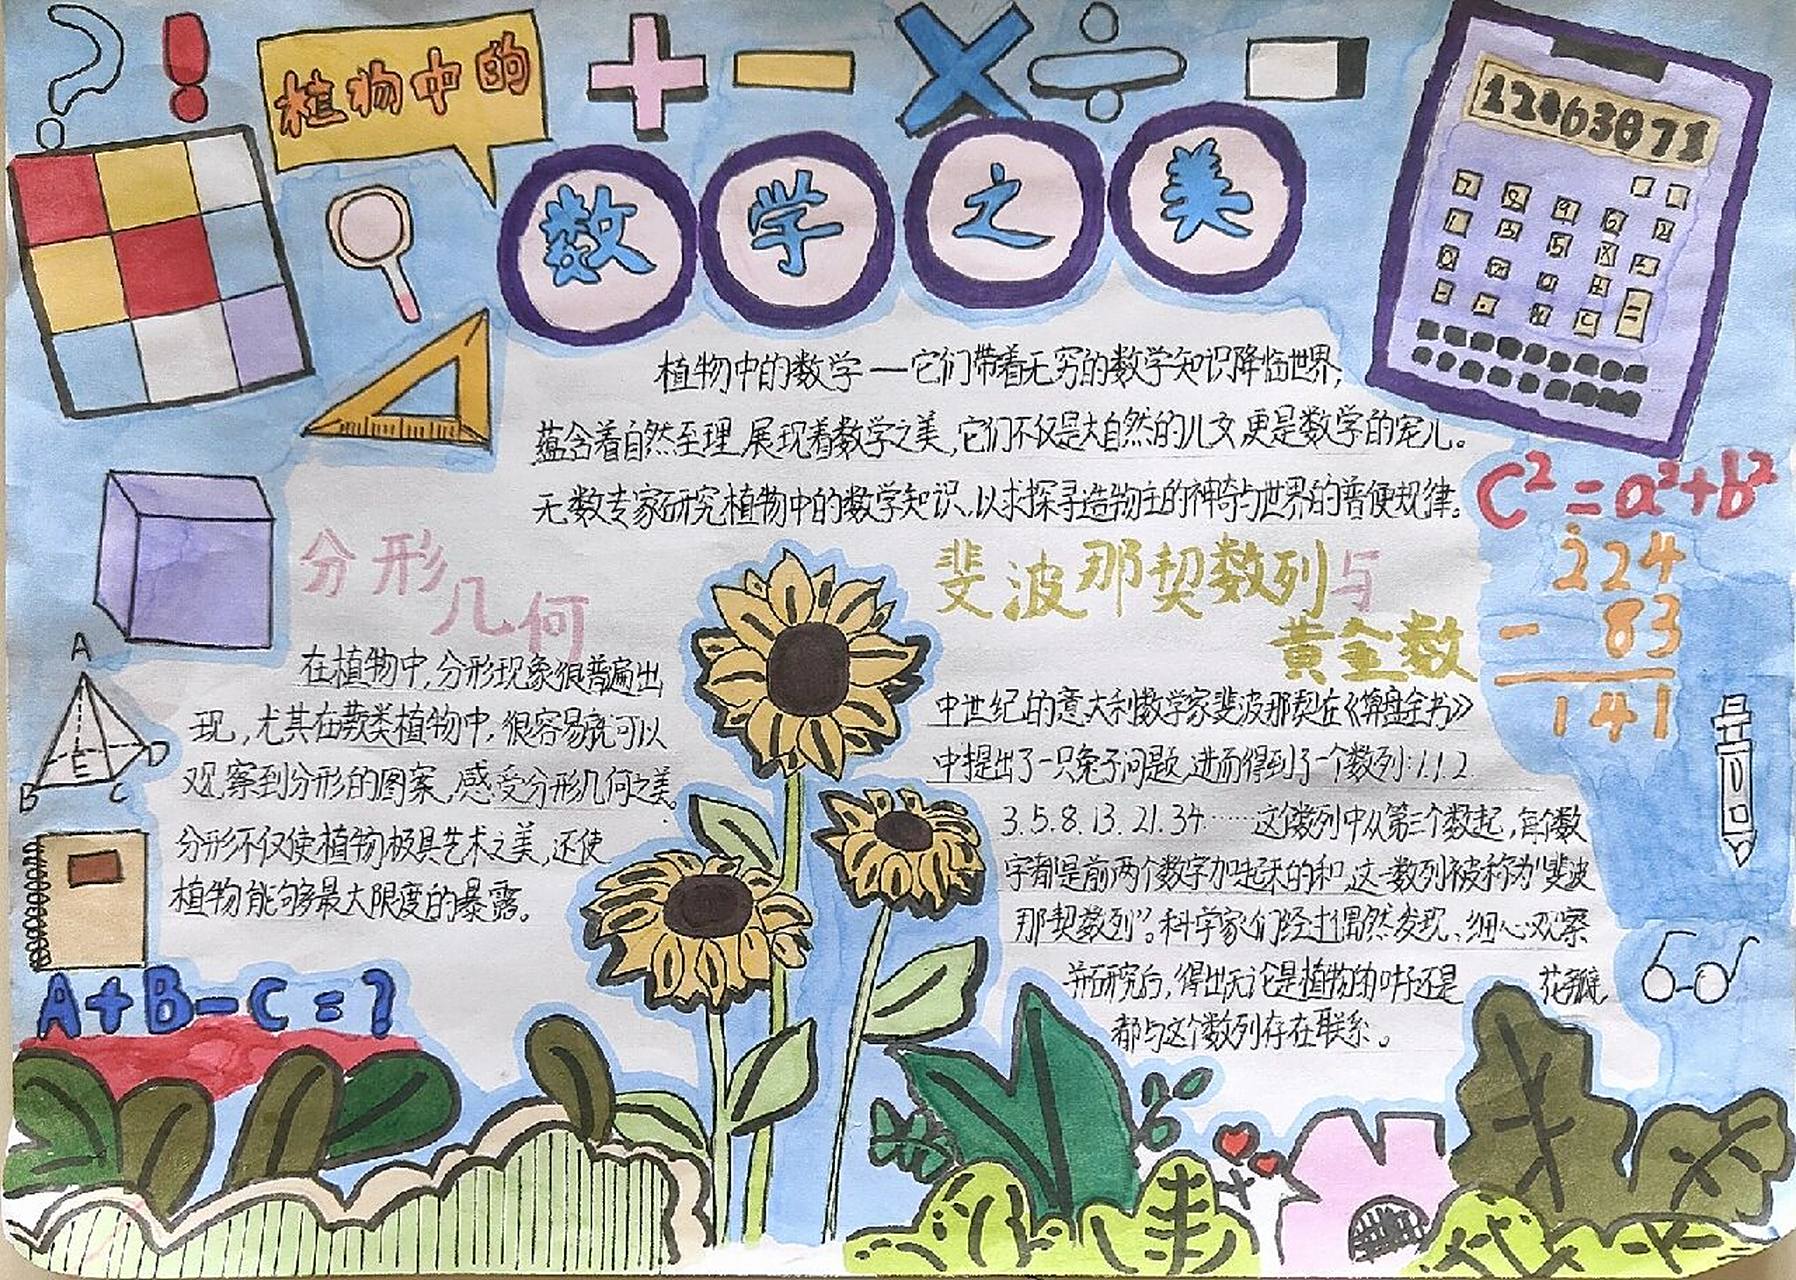 植物中的
数学之美
12463871
植物中的数学——它们带着无穷的数学知识降临世界,
蕴含着自然至理,展现着数学之美,它们不仅是大自然的儿女,更是数学的宠儿。
无数专家研究植物中的数学知识,以求探寻造物主的神奇与世界的普便规律。
C²=a²+b²
224
- 83
141
分形几何
在植物中,分形现象很普遍出
现,尤其在蕨类植物中,很容易就可以
观察到分形的图案,感受分形几何之美。
分形不仅使植物极具艺术之美,还使
植物能够最大限度的暴露。
斐波那契数列与
黄金数
中世纪的意大利数学家斐波那契在《算盘全书》
中提出了一只兔子问题,进而得到了一个数列:1.1.2.
3.5.8.13.21.34……这个数列中从第三个数起,每个数
字都是前两个数字加起来的和,这一数列被称为“斐波
那契数列”。科学家们经过偶然发现、细心观察
并研究后,得出无论是植物的叶子还是 花瓣,
都与这个数列存在联系。
A
B
C
D
E
A+B-C=?